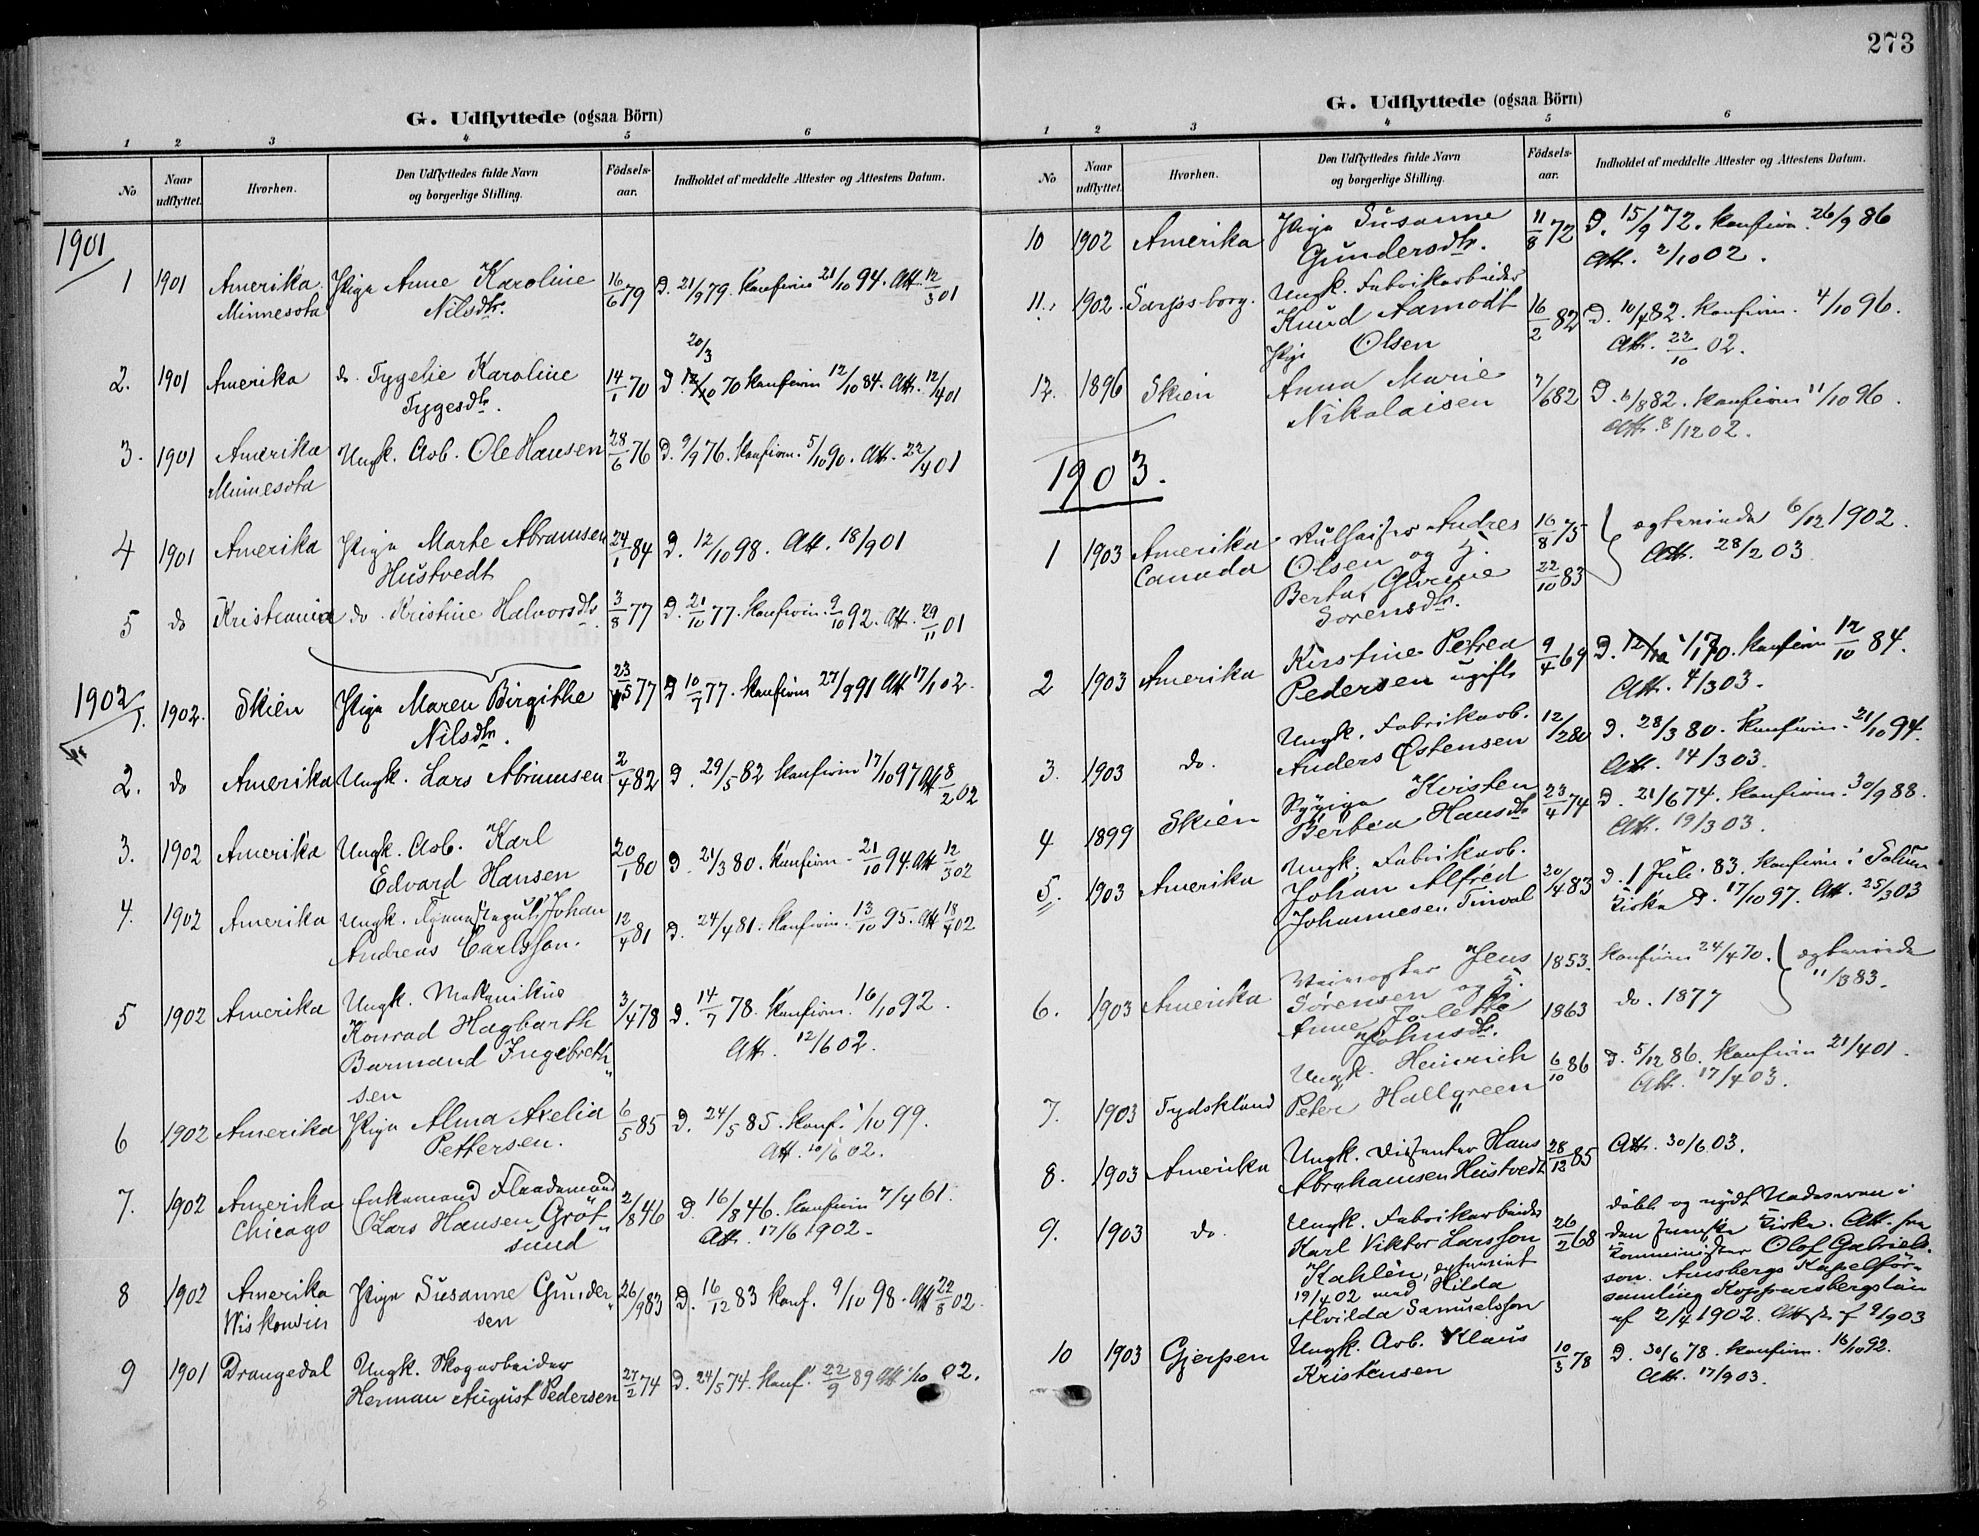 G. Udflyttede (ogsaa Börn)
1 2 3 4 5 6
No Naar udflyttet. Hvorhen. Den Udflyttedes fulde Navn og borgerlige Stilling. Födsels-aar. Indholdet af meddelte Attester og Attestens Datum.
1901
1 1901 Amerika Pige Anne Karoline 16/6 79 D. 21/9 79. Konfirm 21/10 94. Att. 12/3 01
Minnesota Nilsdtr.
20/3
2. 1901 Amerika do. Tygelie Karoline 14/1 70 D. 70 Konfirm 12/10 84. Att. 12/4 01
Tygesdtr.
3. 1901 Amerika Ungk. Arb. Ole Hansen 28/6 76 D. 9/9 76. Konfirm. 5/10 90. Att. 22/4 01
Minnesota
4 1901 Amerika Pige Marte Abramsen 24/1 84 D. 12/10 98. Att. 18/9 01
Hustvedt
5 do Kristiania do. Kristine Halvorsdtr. 3/8 77 D. 21/10 77. Konfirm. 9/10 92. Att. 29/11 01
1902
1. 1902. Skien Pige Maren Birgithe 23/5 77 D 10/7 77. Konfirm 27/9 91 Att 17/1 02.
Nilsdtr.
2. do Amerika Ungk. Lars Abramsen 2/4 82 D. 29/5 82 Konfirm 17/10 97 Att 8/2 02
3. 1902 Amerika Ungk. Arb. Karl 20/1 80 D. 21/3 80. Konfirm. 21/10 94. Att 12/3 02
Edvard Hansen
4. 1902 Amerika Ungk. Johan 12/4 81 D. 24/4 81. Konfirm. 13/10 95. Att 18/4 02
Andreas Carlsson.
5 1902 Amerika Ungk. Mekanikus 3/4 78 D. 14/7 78. Konfirm. 16/10 92.
Konrad Hagbarth Att. 12/6 02.
Barmand Ingebreth
sen
6 1902 Amerika Pige Alma Axelia 6/5 85 D. 24/5 85. Konf. 1/10 99.
Pettersen. Att. 10/6 02.
7. 1902 Amerika Enkemand 2/8 46 D. 16/8 46. Konfirm 7/4 61.
Chicago Lars Hansen Gröt Att. 17/6 1902.
sund
8 1902 Amerika Pige Susanne Gunder 26/9 83 D. 16/12 83 Konf. 9/10 98. Att 22/8 02.
Wiskonsin sen
9 1901 Drangedal Ungk. Skogarbeider 27/2 74 D. 24/5 74. Konf. 22/9 89 Att 1/10 02.
Herman August Pedersen
273
G. Udflyttede (ogsaa Börn)
1 2 3 4 5 6
No Naar udflyttet. Hvorhen. Den Udflyttedes fulde Navn og borgerlige Stilling. Födsels-aar. Indholdet af meddelte Attester og Attestens Datum.
10 1902 Amerika Pige Susanne 11/8 72 D. 15/9 72. Konfirm. 26/9 86
Gundersdtr. Att. 2/10 02.
11. 1902. Sarpsborg. Ungk. Fabrikarbeider
Knud Aamodt 16/2 82 D. 10/4 82. Konfirm. 4/10 96.
Olsen Att. 22/10 02.
Pige
12. 1896 Skien Anna Marie 7/6 82 D. 6/8 82. Konfirm 11/10 96.
Nikolaisen Att. 8/12 02.
1903.
1 1903 Amerika Andres 16/8 75 ægteviede 6/12 1902.
Canada Olsen og H. 22/10 83 Att. 28/2 03.
Berta Gurine
Sorensdtr.
2 1903 Amerika Kirstine Petrea 9/4 69 D. 1/1 70. Konfirm 12/10 84.
Pedersen ugift Att. 4/3 03.
Ungk. Fabrikarb.
3. 1903 do. Anders Østensen 12/2 80 D. 28/3 80. Konfirm. 21/10 94.
Att. 14/3 03.
4 1899 Skien Sypige Kirsten 23/4 74 D. 21/6 74. Konfirm. 30/9 88.
Berbea Hansdtr Att. 19/3 03.
5. 1903 Amerika Ungk. Fabrikarb.
Johan Alfred 20/4 83 D. 1 Juli 83. Konfirm i Solum
Johannesen Kirke D. 17/10 97. Att. 25/3 03
6. 1903 Amerika Jens 1853. Konfirm 24/4 70. ægteviede
Sørensen og H. 11/3 83.
Anne 1863 do. 1877
Johnsdtr.
7. 1903 Tydskland Ungk. Heinrich 6/10 86 D. 5/12 86. Konfirm 21/4 01.
Peter Hallgreen Att. 17/4 03.
8. 1903 Amerika Ungk. Dissenter Hans 28/12 85 Att. 30/6 03.
Abrahamsen Hustvedt
9. 1903 do. Ungk. Fabrikarbeider 26/2 68 döbt og nydt Nadveren i
Karl Viktor Larsson den svenske Kirke. Att. fra
Kahlén, Komminister Olof Gabriels
19/4 02 med Hilda son. Amsbergs Kapelför-
Alvilda Samuelsson samling Kopparbergslän
af 2/4 1902. Att af 9/9 03
10 1903 Gjerpen Ungk. Arb. Klaus 10/3 78 D. 30/6 78. Konfirm. 16/10 92.
Kristensen Att. 17/9 03.